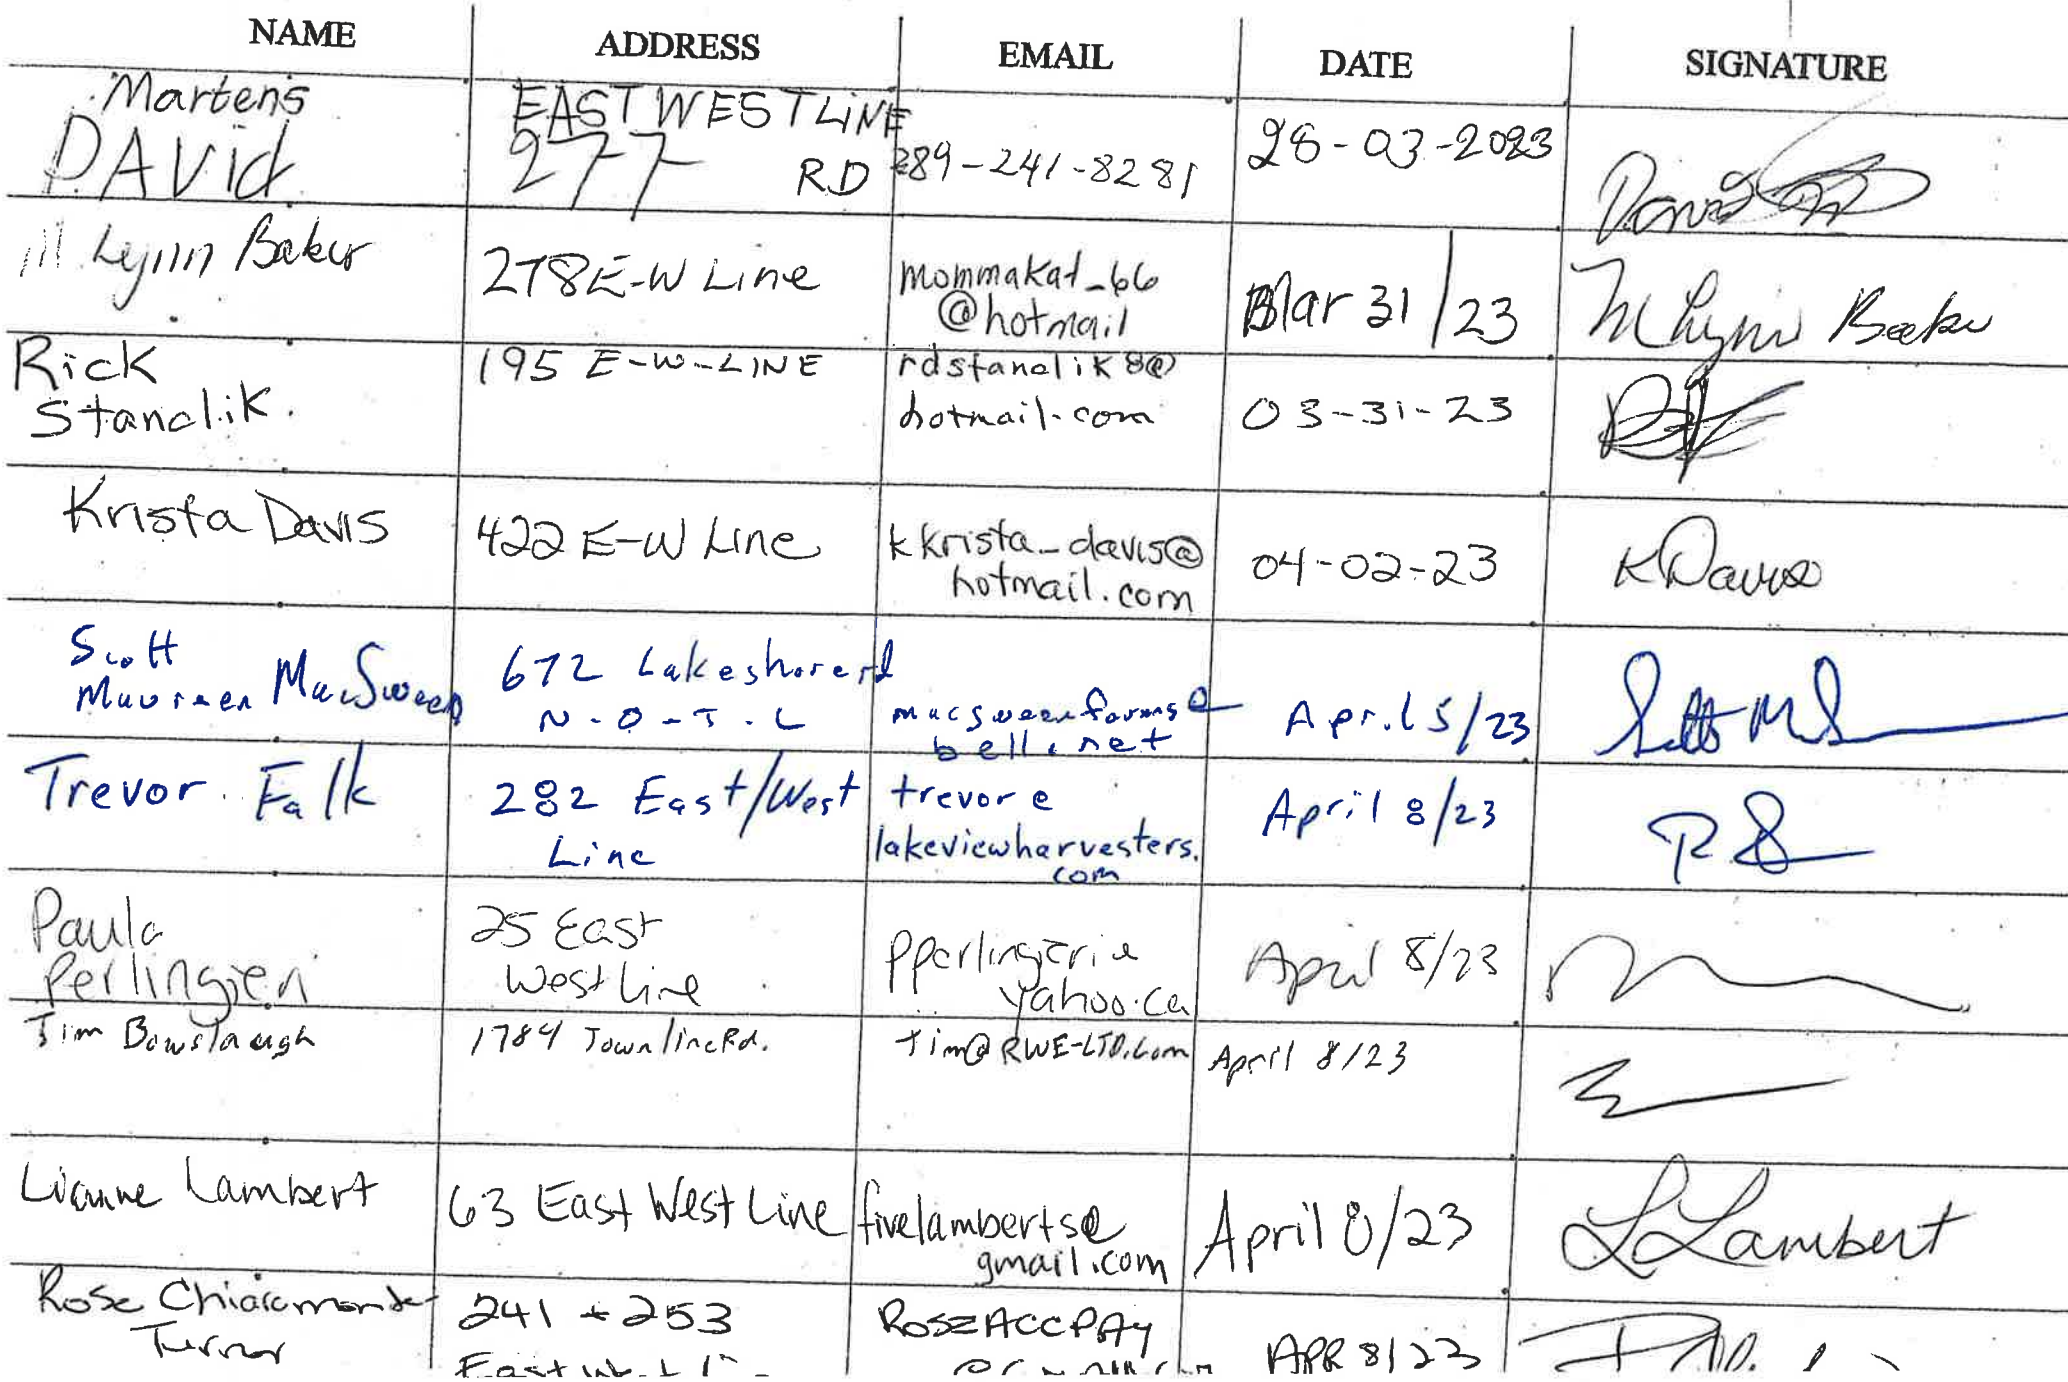 NAME ADDRESS EMAIL DATE SIGNATURE
Martens
DAVid
EAST WEST LiNE
277 RD
289-241-8281
28-03-2023
David
M Lynn Baker
278 E-W Line
mommakat_66
@hotmail
Mar 31/23
M Lynn Baker
Rick
Stanclik.
195 E-W-LINE
rdstanclik8@
hotmail.com
03-31-23
Krista Davis
422 E-W Line
kkrista_davis@
hotmail.com
04-02-23
K Davis
Scott
Maureen MacSween
672 Lakeshore rd
N-O-T-L
macsweenfarms@
bell.net
April 5/23
Trevor Falk
282 East/West
Line
trevor@
lakeviewharvesters.
com
April 8/23
Paula
Perlingieri
25 East
West Line
pperlingieri@
yahoo.ca
April 8/23
Tim Bowslaugh
1784 Townline Rd.
tim@RWE-LTD.com
April 8/23
Lianne Lambert
63 East West Line
fivelamberts@
gmail.com
April 8/23
L Lambert
Rose Chiaramonte
Turner
241 + 253
East West
ROSEACCPAY
APR 8/23